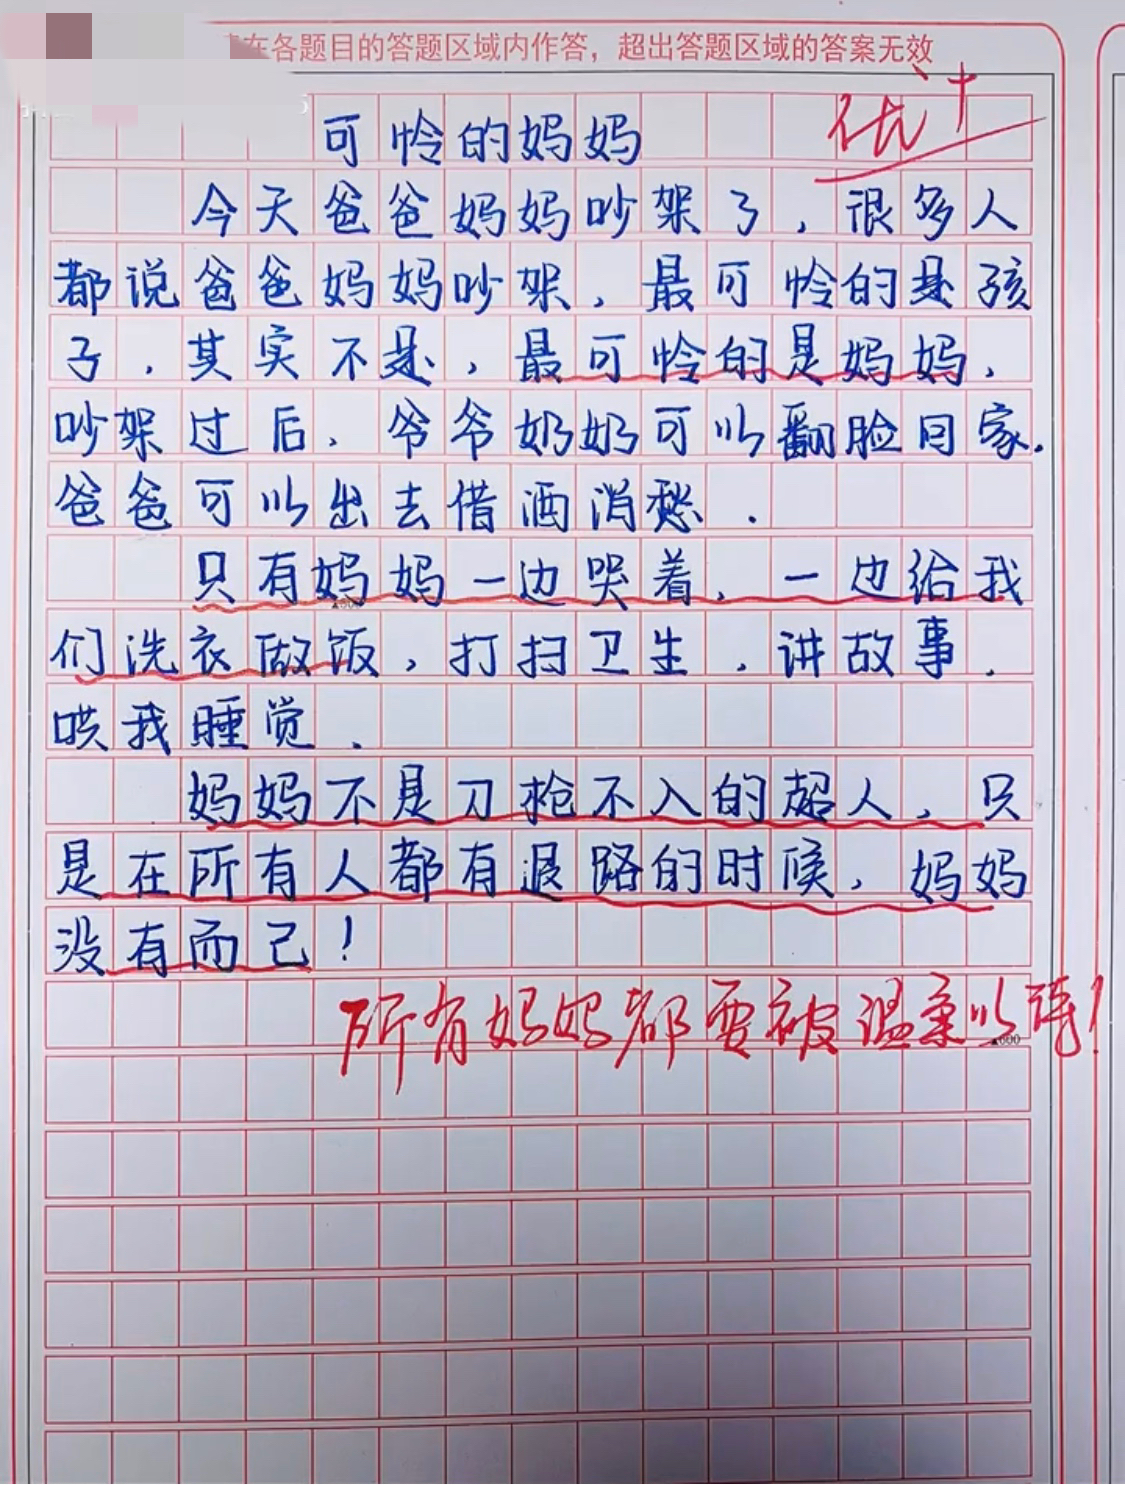 在各题目的答题区域内作答，超出答题区域的答案无效
优+
可怜的妈妈
今天爸爸妈妈吵架了，很多人
都说爸爸妈妈吵架，最可怜的是孩
子，其实不是，最可怜的是妈妈，
吵架过后，爷爷奶奶可以翻脸回家.
爸爸可以出去借酒消愁.
只有妈妈一边哭着，一边给我
们洗衣做饭，打扫卫生，讲故事.
哄我睡觉.
妈妈不是刀枪不入的超人，只
是在所有人都有退路的时候，妈妈
没有而已！
所有妈妈都要被温柔以待！
▲600